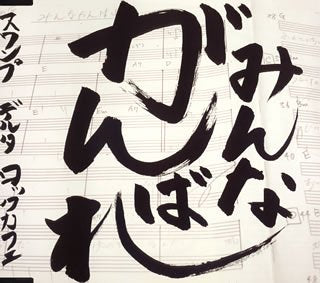 みんな
がんばれ
スワンプ デルタ ロックカフェ
みんながんば